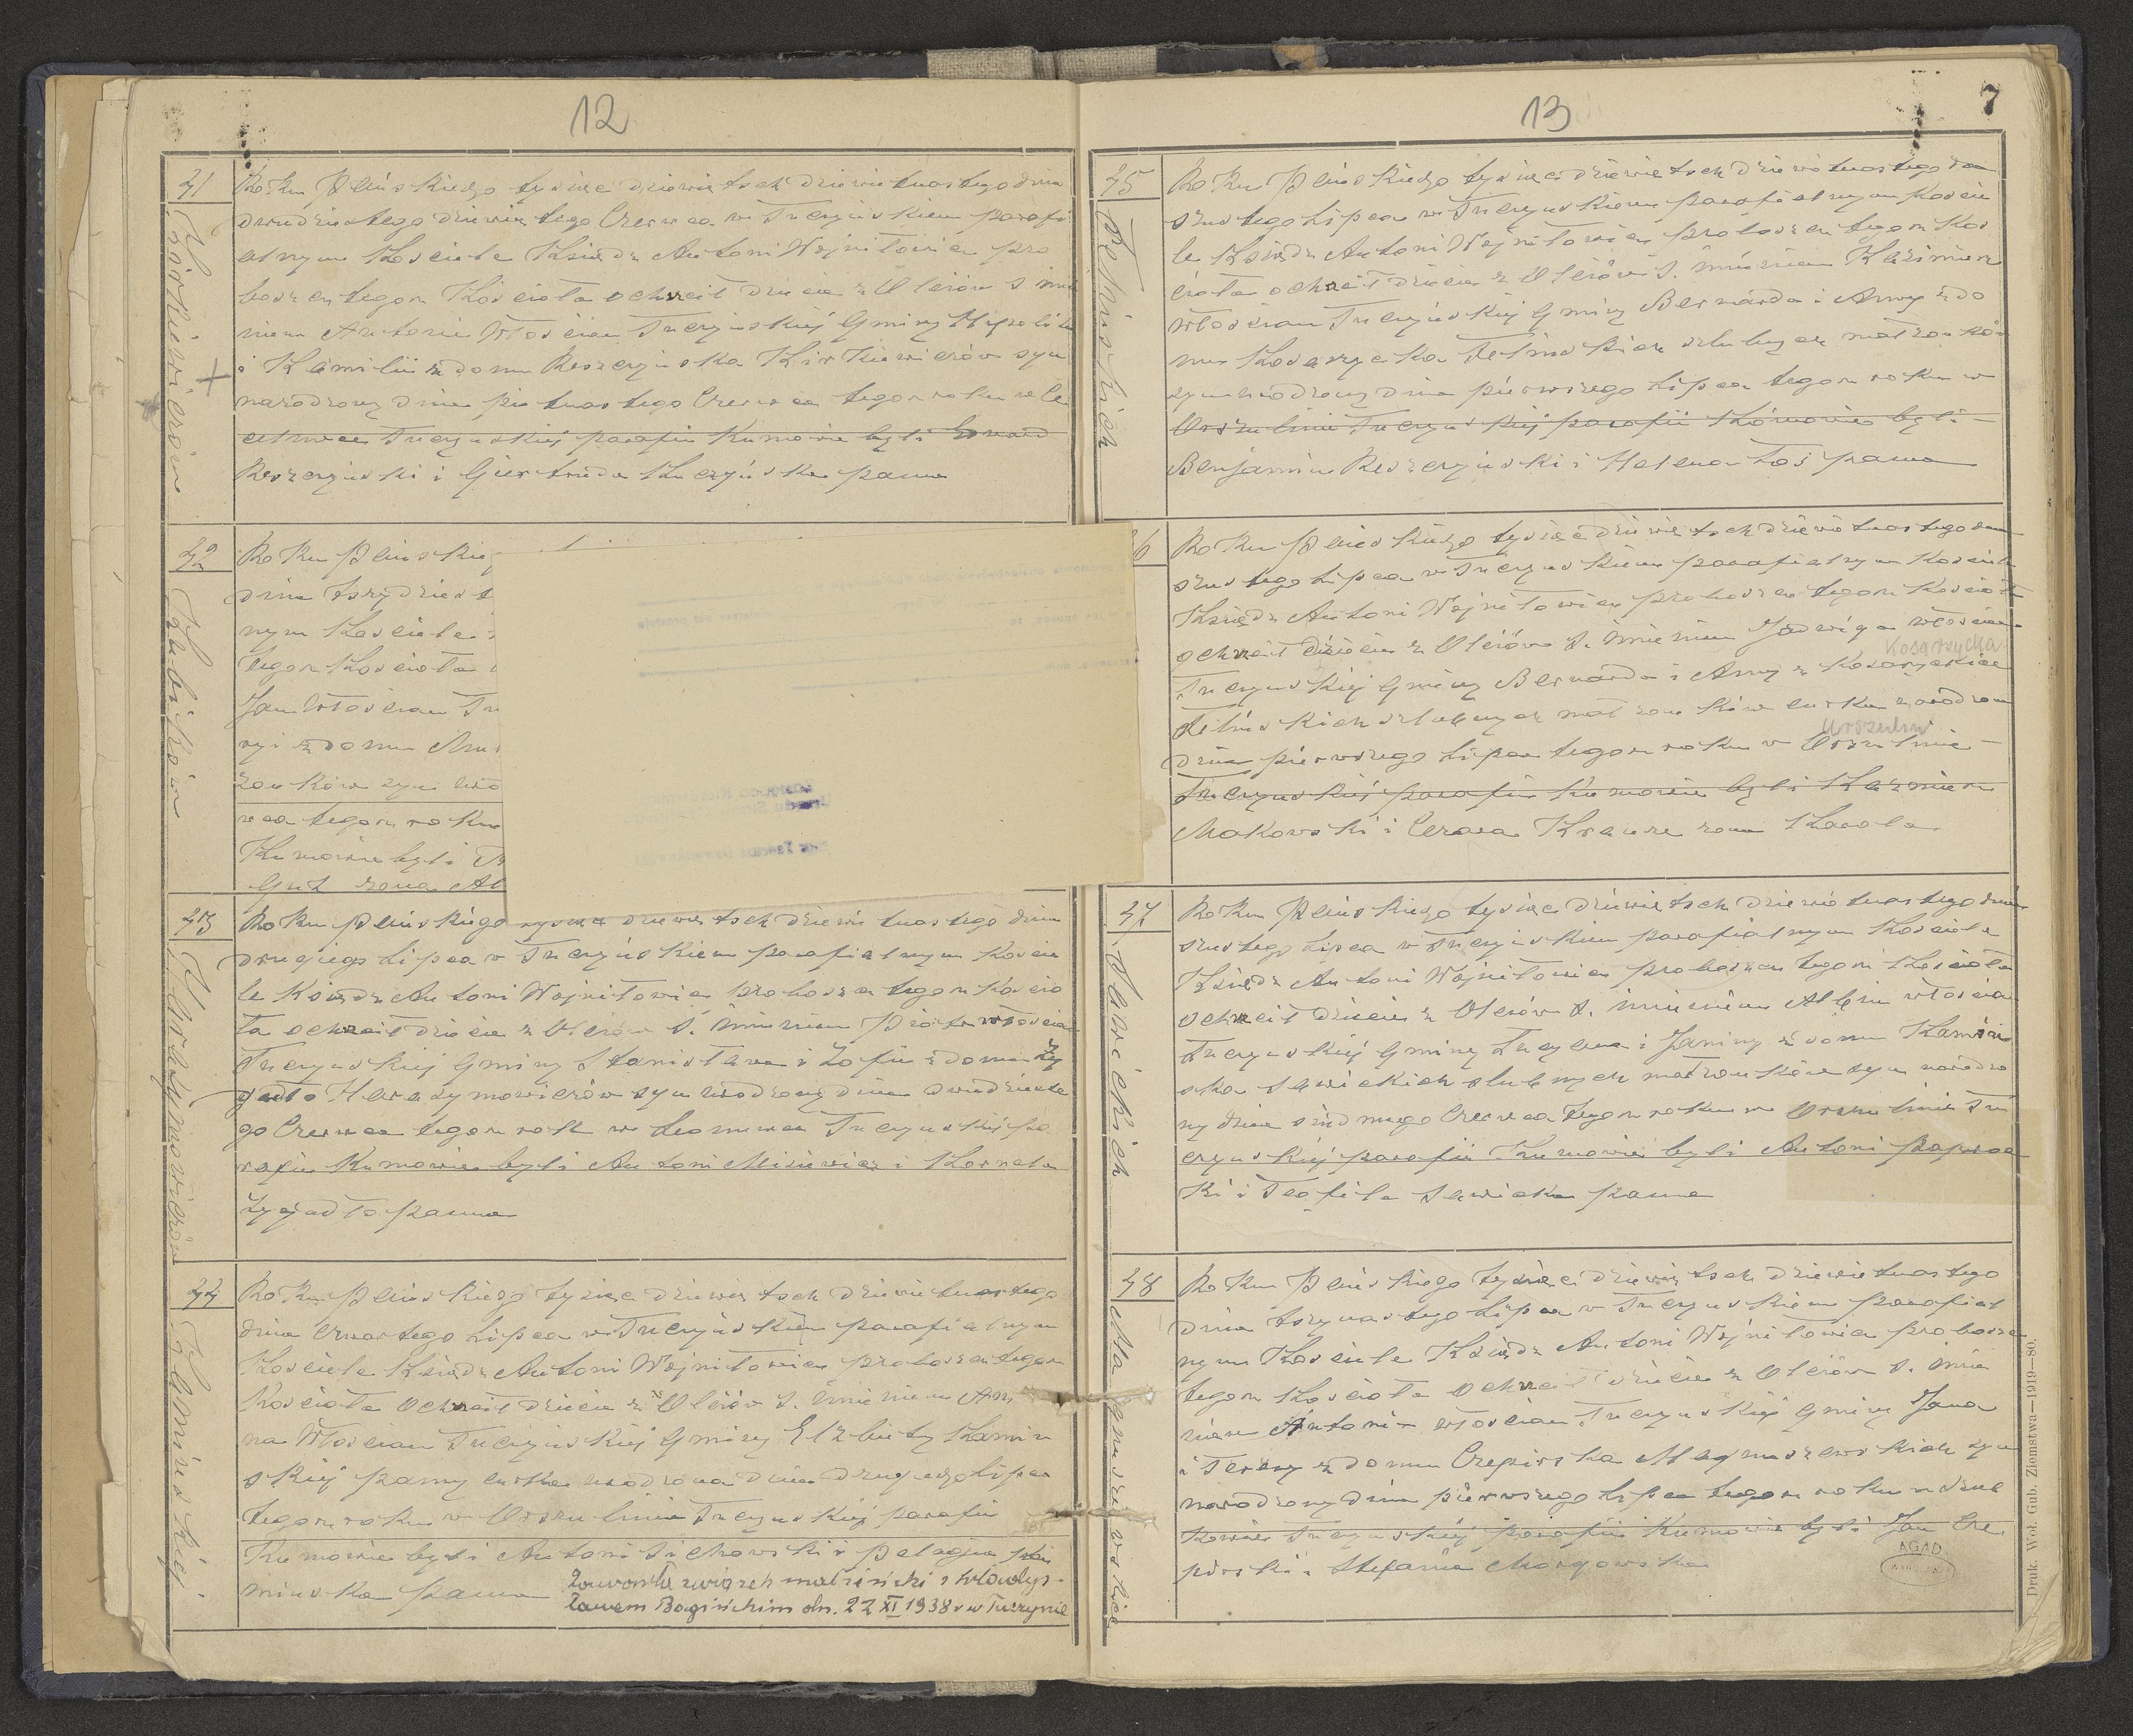 12
41
Kirkiewiczów
Roku Pańskiego tysiąc dziewiętset dziewietnastego dnia
dwudziestego dziewiętego Czerwca w Tuczyńskiem parafi
alnym Kosciele Ksiądz Antoni Wojnitowicz pro
boszcz tegoz Kościoła ochrcił dziecie z Olejów S. imie
niem Antoni Włoscian Tuczyńskiej Gminy Hipolita
i Kamilii z domu Reszczyńska Kirkiewiczów syn
narodzony dnia pietnastego Czerwca tegoz roku w
Tuczynskiej parafii Kumowie byli Edward
Reszczyński i Giertruda Kuczyńska panna
42
Kubików
Roku Pańskieg
dnia trzydziest
nym Kosciele
tegoz Kosciola
Jan Wloscian Tu
ryi z domu
zonków syn uro
wca tegoz roku
Kumowie byli
Gut zona Al
43
Harasymowiczów
Roku Pańskiego tysiąc dziewiętset dziewietnastego dnia
drugiego Lipca w Tuczyńskiem parafialnym Koscie
le Ksiądz Antoni Wojnitowicz proboszcz tegoz Koscio
ła ochrcił dziecie z Olejów S. imieniem Piotr włoscian
Tuczynskiej Gminy Stanisława i Zofii z domu Ży
gadło Harasymowiczów syn urodzony dnia dwudzieste
go Czerwca tegoz roku w Leonuwca Tuczynskiej pa
rafii Kumowie byli Antoni Misiewicz i Korneta
Żygadło panna
44
Kaminskiej
Roku Pańskiego tysiąc dziewiętset dziewietnastego
dnia czwartego Lipca w Tuczyńskiem parafialnym
Kosciele Ksiądz Antoni Wojnitowicz proboszcz tegoz
Kościoła ochrcił dziecie z Olejów S. imieniem An
na Włoscian Tuczyńskiej Gminy Elzbiety Kamin
skiej panny curka urodzona dnia drugiego Lipca
tegoz roku w Orszulinie Tuczynskiej parafii
Kumowie byli Antoni Sichowski i Pelagia Ka
minska panna
Zawarła związek małżeński z Władys-
ławem Bagińskim dn. 22 XI 1938 r w Tuczynie
13
7
45
Felińskich
Roku Pańskiego tysiąc dziewiętset dziewietnastego dnia
szustego Lipca w Tuczynskiem parafialnym Koscie
le Ksiądz Antoni Wojnitowicz proboszcz tegoz Kos
cioła ochrcił dziecie z Olejów S. imieniem Kazimierz
Włoscian Tuczyńskiej Gminy Bernarda i Anny z do
mu Kosarzycka Felinskich szlubnych małzonków
syn urodzony dnia pierwszego Lipca tegoz roku w
Orszulinie Tuczynskiej parafii Kumowie byli
Benjamin Reszczyński i Helena Łoś panna
46
Roku Pańskiego tysiąc dziewiętset dziewietnastego dnia
szustego Lipca w Tuczynskiem parafialnym Kosciele
Ksiądz Antoni Wojnitowicz proboszcz tegoz Kościoła
ochrcił dziecie z Olejów S. imieniem Jadwiga włoscian
Kosarzycka
Tuczynskiej Gminy Bernarda i Anny z Kosarzyckich
Felińskich szlubnych małzonków curka urodzona
Urszulin
dnia pierwszego Lipca tegoz roku w Orszulinie
Tuczynskiej parafii Kumowie byli Kazmierz
Makowski i Cezara Krauze zona Karola
47
Sawickich
Roku Pańskiego tysiąc dziewiętset dziewietnastego dnia
szustego Lipca w Tuczynskiem parafialnym Kosciele
Ksiądz Antoni Wojnitowicz proboszcz tegoz Kościoła
ochrcił dziecie z Olejów S. imieniem Albin włoscian
Tuczynskiej Gminy Lucyana i Janiny z domu Kamiń
ska Sawickich slubnych małzonków syn narodzo
ny dnia siudmego Czerwca tegoz roku w Orszulinie Tu
czynskiej parafii Kumowie byli Antoni Paproc
ki i Teofila Sawicka panna
48
Magnuszewskich
Roku Pańskiego tysiąc dziewiętset dziewietnastego
dnia trzynastego Lipca w Tuczynskiem parafial
nym Kosciele Ksiądz Antoni Wojnitowicz proboszcz
tegoz Kosciola ochrcił dziecie z Olejów S. imie
niem Antoni włoscian Tuczynskiej Gminy Jana
i Teresy z domu Czepirska Magnuszewskich syn
narodzony dnia pierwszego Lipca tegoz roku w
Tuczynskiej parafii Kumowie byli Jan Cze
pirski i Stefania Morgowska
AGAD
Druk. Woł. Gub. Ziemstwa—1919—80.